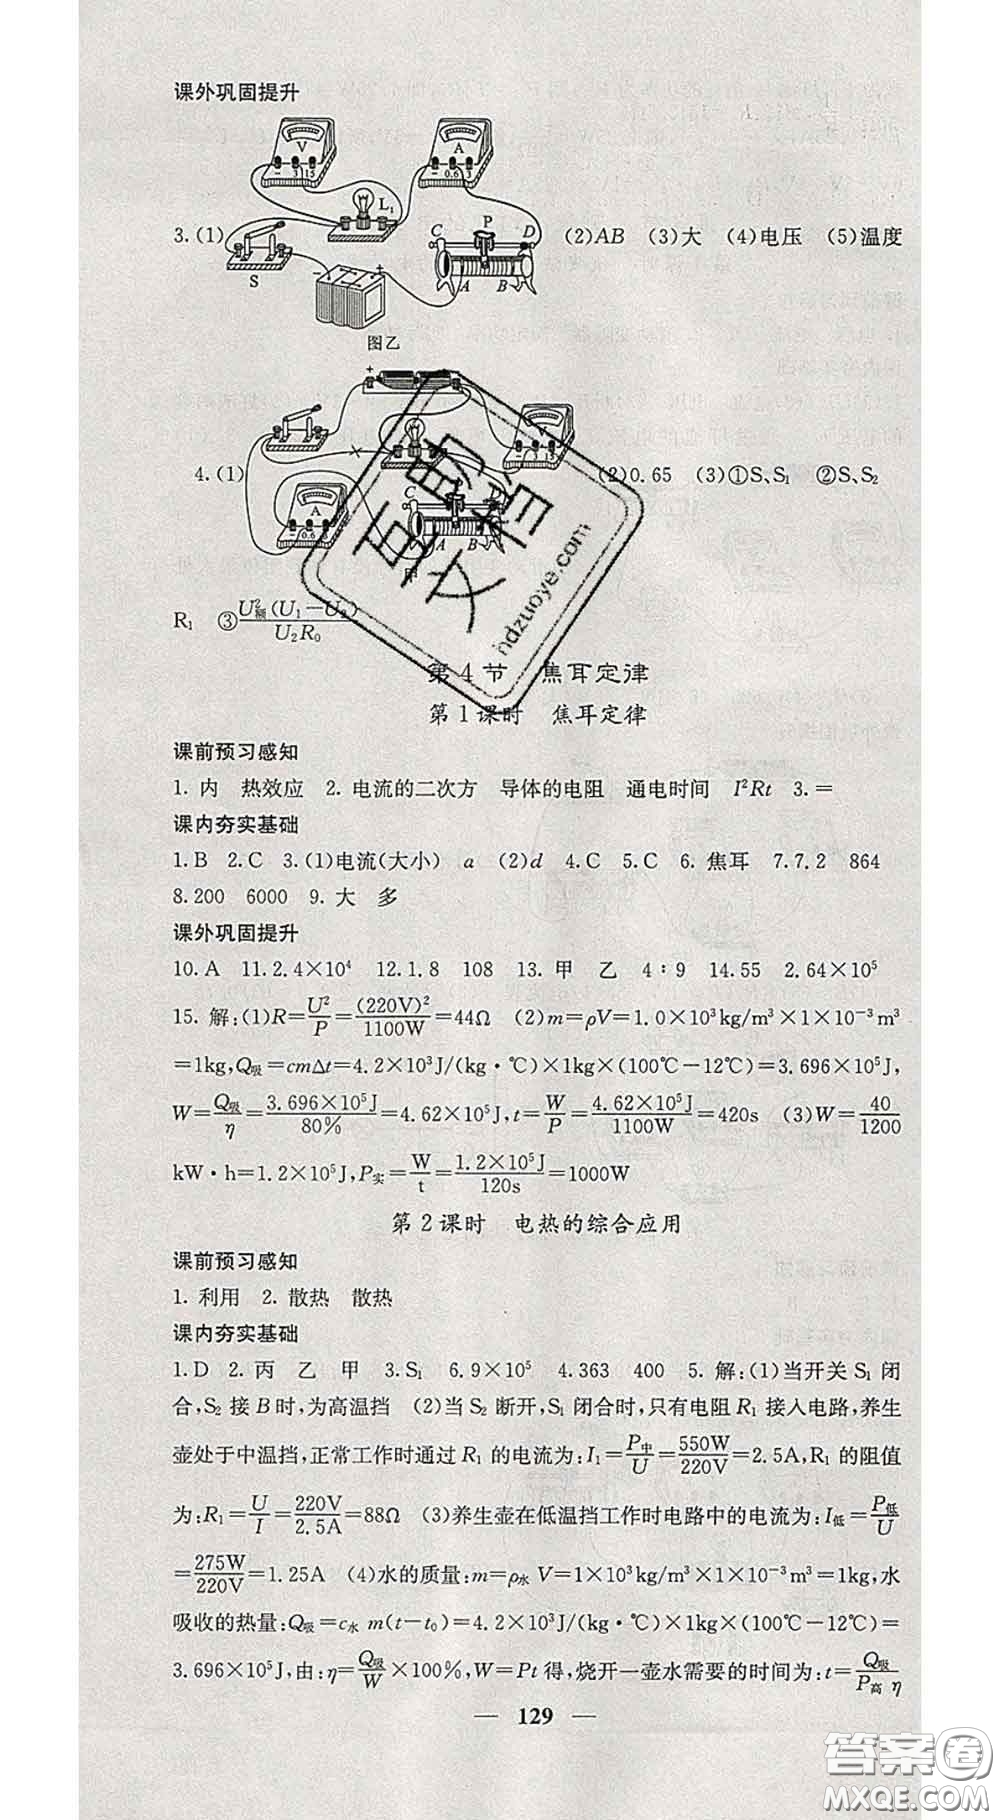 课外巩固提升
V
- 3 15
A
- 0.6 3
L₁
3.(1)
S
C P D
A B
- +
(2)AB (3)大 (4)电压 (5)温度
图乙
+
V
3 15
4.(1)
A
- 0.6 3
C
A B
甲
(2)0.65 (3)①S、S₁ ②S、S₂
R₁ ③U²额(U₁-U₂)/U₂R₀
第4节 焦耳定律
第1课时 焦耳定律
课前预习感知
1. 内 热效应 2. 电流的二次方 导体的电阻 通电时间 I²Rt 3. =
课内夯实基础
1.B 2.C 3.(1)电流(大小) a (2)d 4.C 5.C 6. 焦耳 7.7.2 864
8.200 6000 9. 大 多
课外巩固提升
10.A 11.2.4×10⁴ 12.1.8 108 13. 甲 乙 4∶9 14.55 2.64×10⁵
15. 解:(1)R=U²/P=(220V)²/1100W=44Ω (2)m=ρV=1.0×10³kg/m³×1×10⁻³m³
=1kg,Q吸=cmΔt=4.2×10³J/(kg·℃)×1kg×(100℃-12℃)=3.696×10⁵J,
W=Q吸/η=3.696×10⁵J/80%=4.62×10⁵J,t=W/P=4.62×10⁵J/1100W=420s (3)W=40/1200
kW·h=1.2×10⁵J,P实=W/t=1.2×10⁵J/120s=1000W
第2课时 电热的综合应用
课前预习感知
1. 利用 2. 散热 散热
课内夯实基础
1.D 2. 丙 乙 甲 3.S₁ 6.9×10⁵ 4.363 400 5. 解:(1)当开关 S₁ 闭
合,S₂ 接 B 时,为高温挡 (2)当 S₂ 断开,S₁ 闭合时,只有电阻 R₁ 接入电路,养生
壶处于中温挡,正常工作时通过 R₁ 的电流为:I₁=P中/U=550W/220V=2.5A,R₁ 的阻值
为:R₁=U/I=220V/2.5A=88Ω (3)养生壶在低温挡工作时电路中的电流为:I低=P低/U
=275W/220V=1.25A (4)水的质量:m=ρ水 V=1×10³kg/m³×1×10⁻³m³=1kg,水
吸收的热量:Q吸=c水 m(t-t₀)=4.2×10³J/(kg·℃)×1kg×(100℃-12℃)=
3.696×10⁵J,由:η=Q吸/W×100%,W=Pt 得,烧开一壶水需要的时间为:t=Q吸/P高 η
— 129 —
ndzuoye.com
答案圈
MXQE.COM